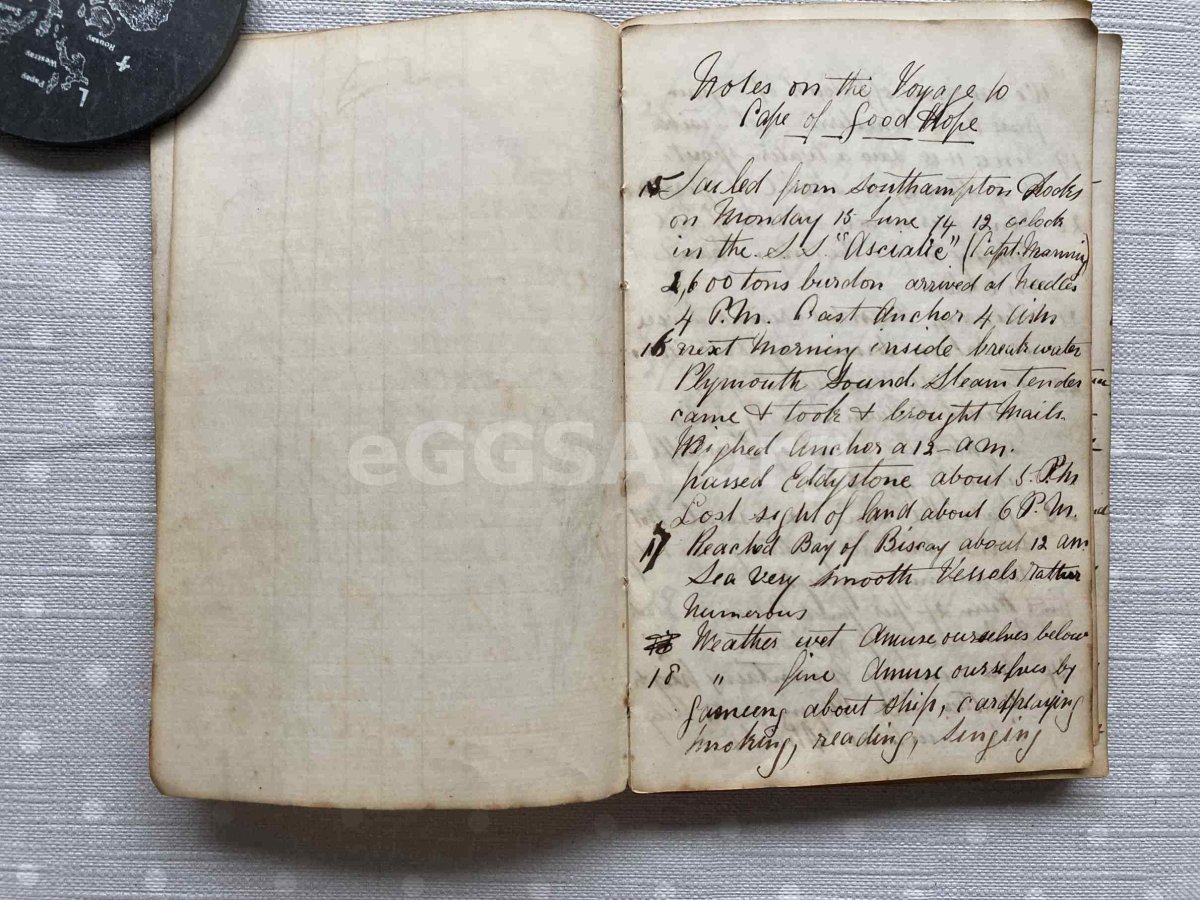 Rousay
Westray
Papay
Notes on the Voyage to
Cape of Good Hope
15 Sailed from Southampton Docks
on Monday 15 June 74 12 oclock
in the S.S. "Asciatic" (Capt. Manning)
2,600 tons burdon arrived at Needles
4 P.M. Cast Anchor 4 A.M
16 next Morning inside breakwater
Plymouth Sound. Steam tender
came & took & brought Mails.
Weighed Anchor a 12 - am.
passed Eddystone about 5. P.M
Lost sight of land about 6 P.M.
17 Reached Bay of Biscay about 12 am.
Sea very smooth Vessels rather
Numerous
Weather wet Amuse ourselves below
18 " fine Amuse ourselves by
gameing about ship, cardplaying
smoking, reading, singing
eGGSA